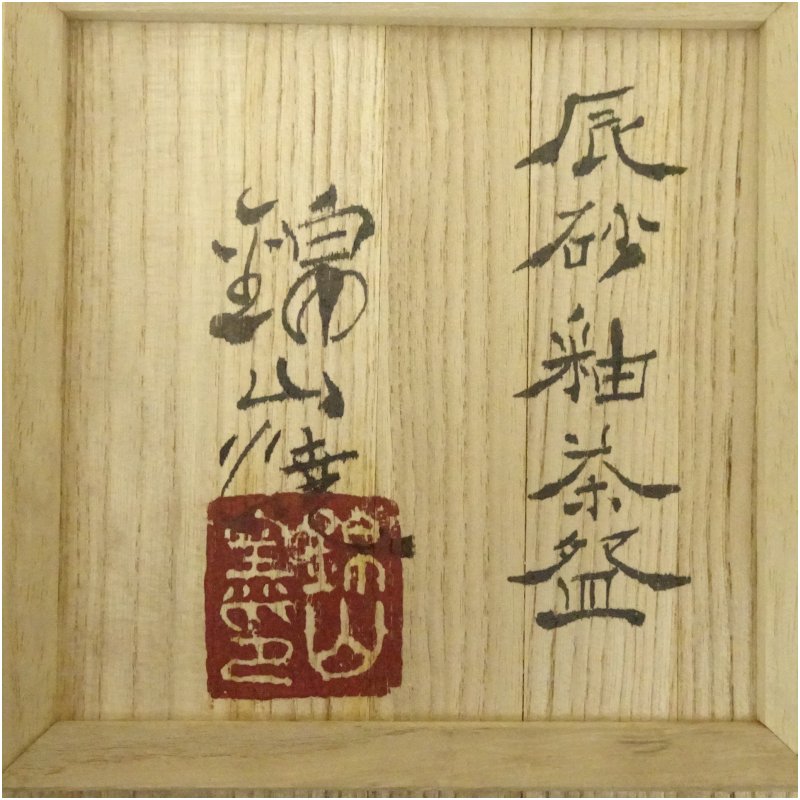 辰砂釉茶盌
錦山焼
錦山
窯印